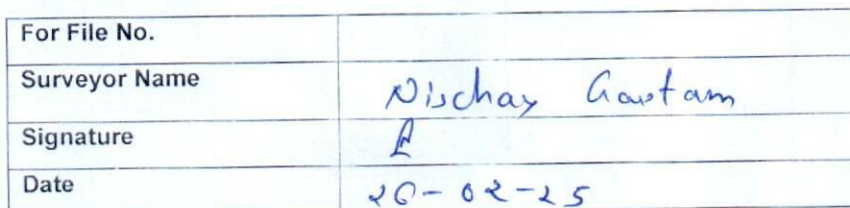 For File No.
Surveyor Name Nischay Gautam
Signature
Date 26-02-25